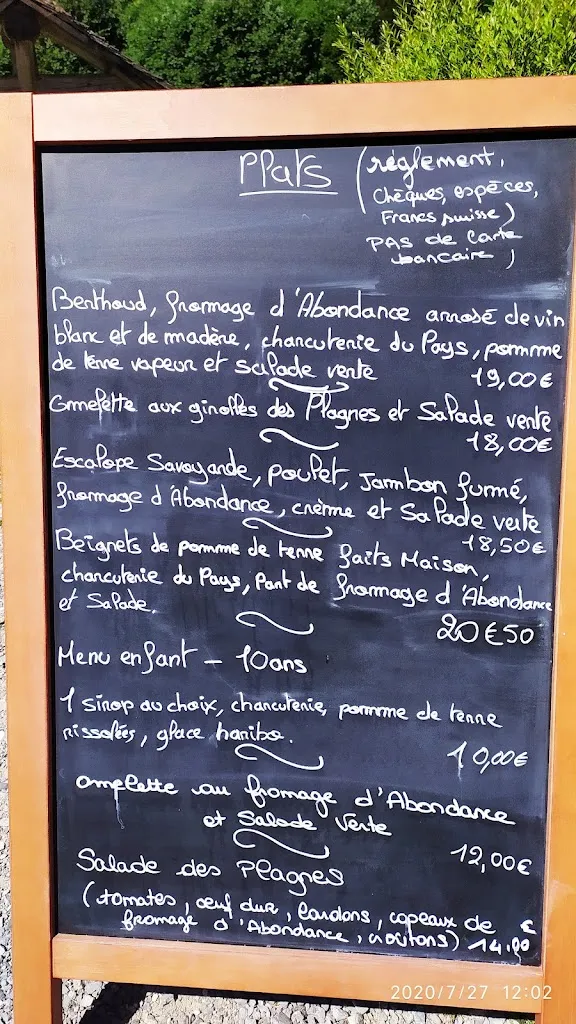 Plats (réglement,
Chèques, espèces,
Francs suisse)
PAS de Carte
bancaire)
Berthoud, fromage d'Abondance arrosé de vin
blanc et de madère, charcuterie du Pays, pomme
de terre vapeur et salade verte
19,00€
Ommelette aux girolles des Plagnes et Salade verte
18,00€
Escalope Savoyarde, poulet, Jambon fumé,
fromage d'Abondance, crème et Salade verte
18,50€
Beignets de pomme de terre faits Maison,
charcuterie du Pays, Part de fromage d'Abondance
et Salade.
20€50
Menu enfant - 10ans
1 sirop au choix, charcuterie, pomme de terre
rissolées, glace haribo.
10,00€
omelette au fromage d'Abondance
et Salade Verte
12,00€
Salade des Plagnes
(tomates, œuf dur, lardons, copeaux de €
fromage d'Abondance, croûtons) 14.00
2020/7/27 12:02